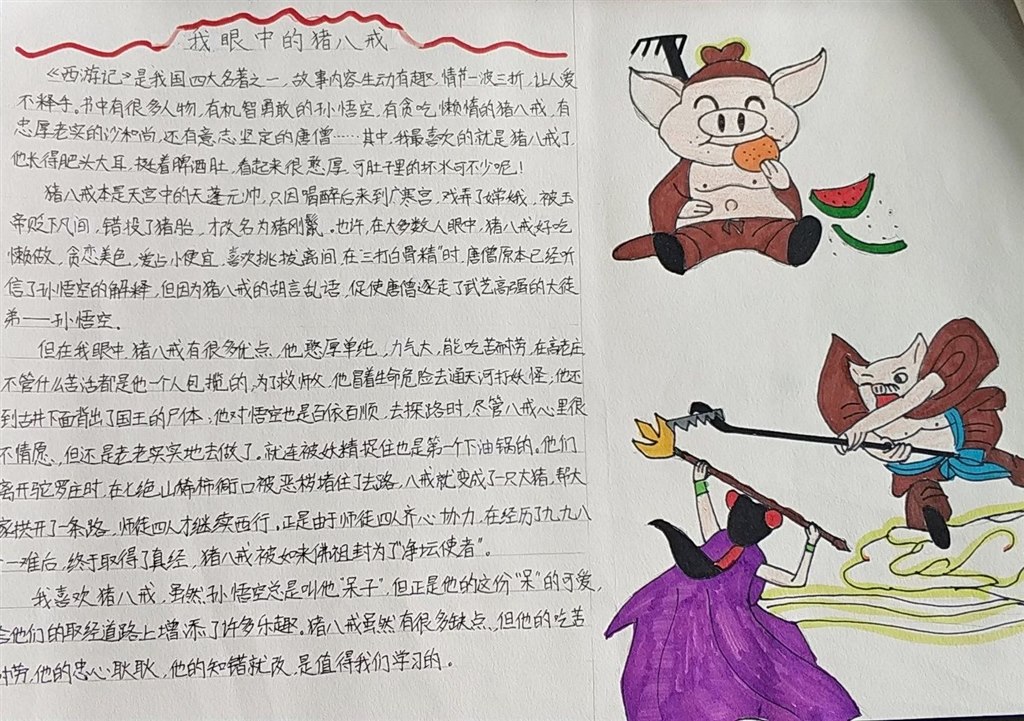 我眼中的猪八戒
《西游记》是我国四大名著之一，故事内容生动有趣，情节一波三折，让人爱
不释手。书中有很多人物，有机智勇敢的孙悟空，有贪吃懒惰的猪八戒，有
忠厚老实的沙和尚，还有意志坚定的唐僧……其中，我最喜欢的就是猪八戒了，
他长得肥头大耳，挺着啤酒肚，看起来很憨厚，可肚子里的坏水可不少呢！
猪八戒本是天宫中的天蓬元帅，只因喝醉后来到广寒宫，戏弄了嫦娥，被玉
帝贬下凡间，错投了猪胎，才改名为猪刚鬣。也许，在大多数人眼中，猪八戒好吃
懒做，贪恋美色，爱占小便宜，喜欢挑拨离间，在三打白骨精"时，唐僧原本已经听
信了孙悟空的解释，但因为猪八戒的胡言乱语，促使唐僧逐走了武艺高强的大徒
弟——孙悟空。
但在我眼中，猪八戒有很多优点，他憨厚单纯，力气大，能吃苦耐劳，在高老庄
不管什么苦活都是他一个人包揽的，为了救师父，他冒着生命危险去通天河打妖怪；他还
到古井下面背出了国王的尸体；他对悟空也是百依百顺，去探路时，尽管八戒心里很
不情愿，但还是老老实实地去做了。就连被妖精捉住也是第一个下油锅的。他们
离开驼罗庄时，在七绝山稀柿衕口被恶秽堵住了去路，八戒就变成了一只大猪，帮大
家拱开了一条路，师徒四人才继续西行。正是由于师徒四人齐心协力，在经历了九九八
十一难后，终于取得了真经，猪八戒被如来佛祖封为了"净坛使者"。
我喜欢猪八戒，虽然孙悟空总是叫他"呆子"，但正是他的这份"呆"的可爱，
给他们的取经道路上增添了许多乐趣。猪八戒虽然有很多缺点，但他的吃苦
耐劳，他的忠心耿耿，他的知错就改，是值得我们学习的。